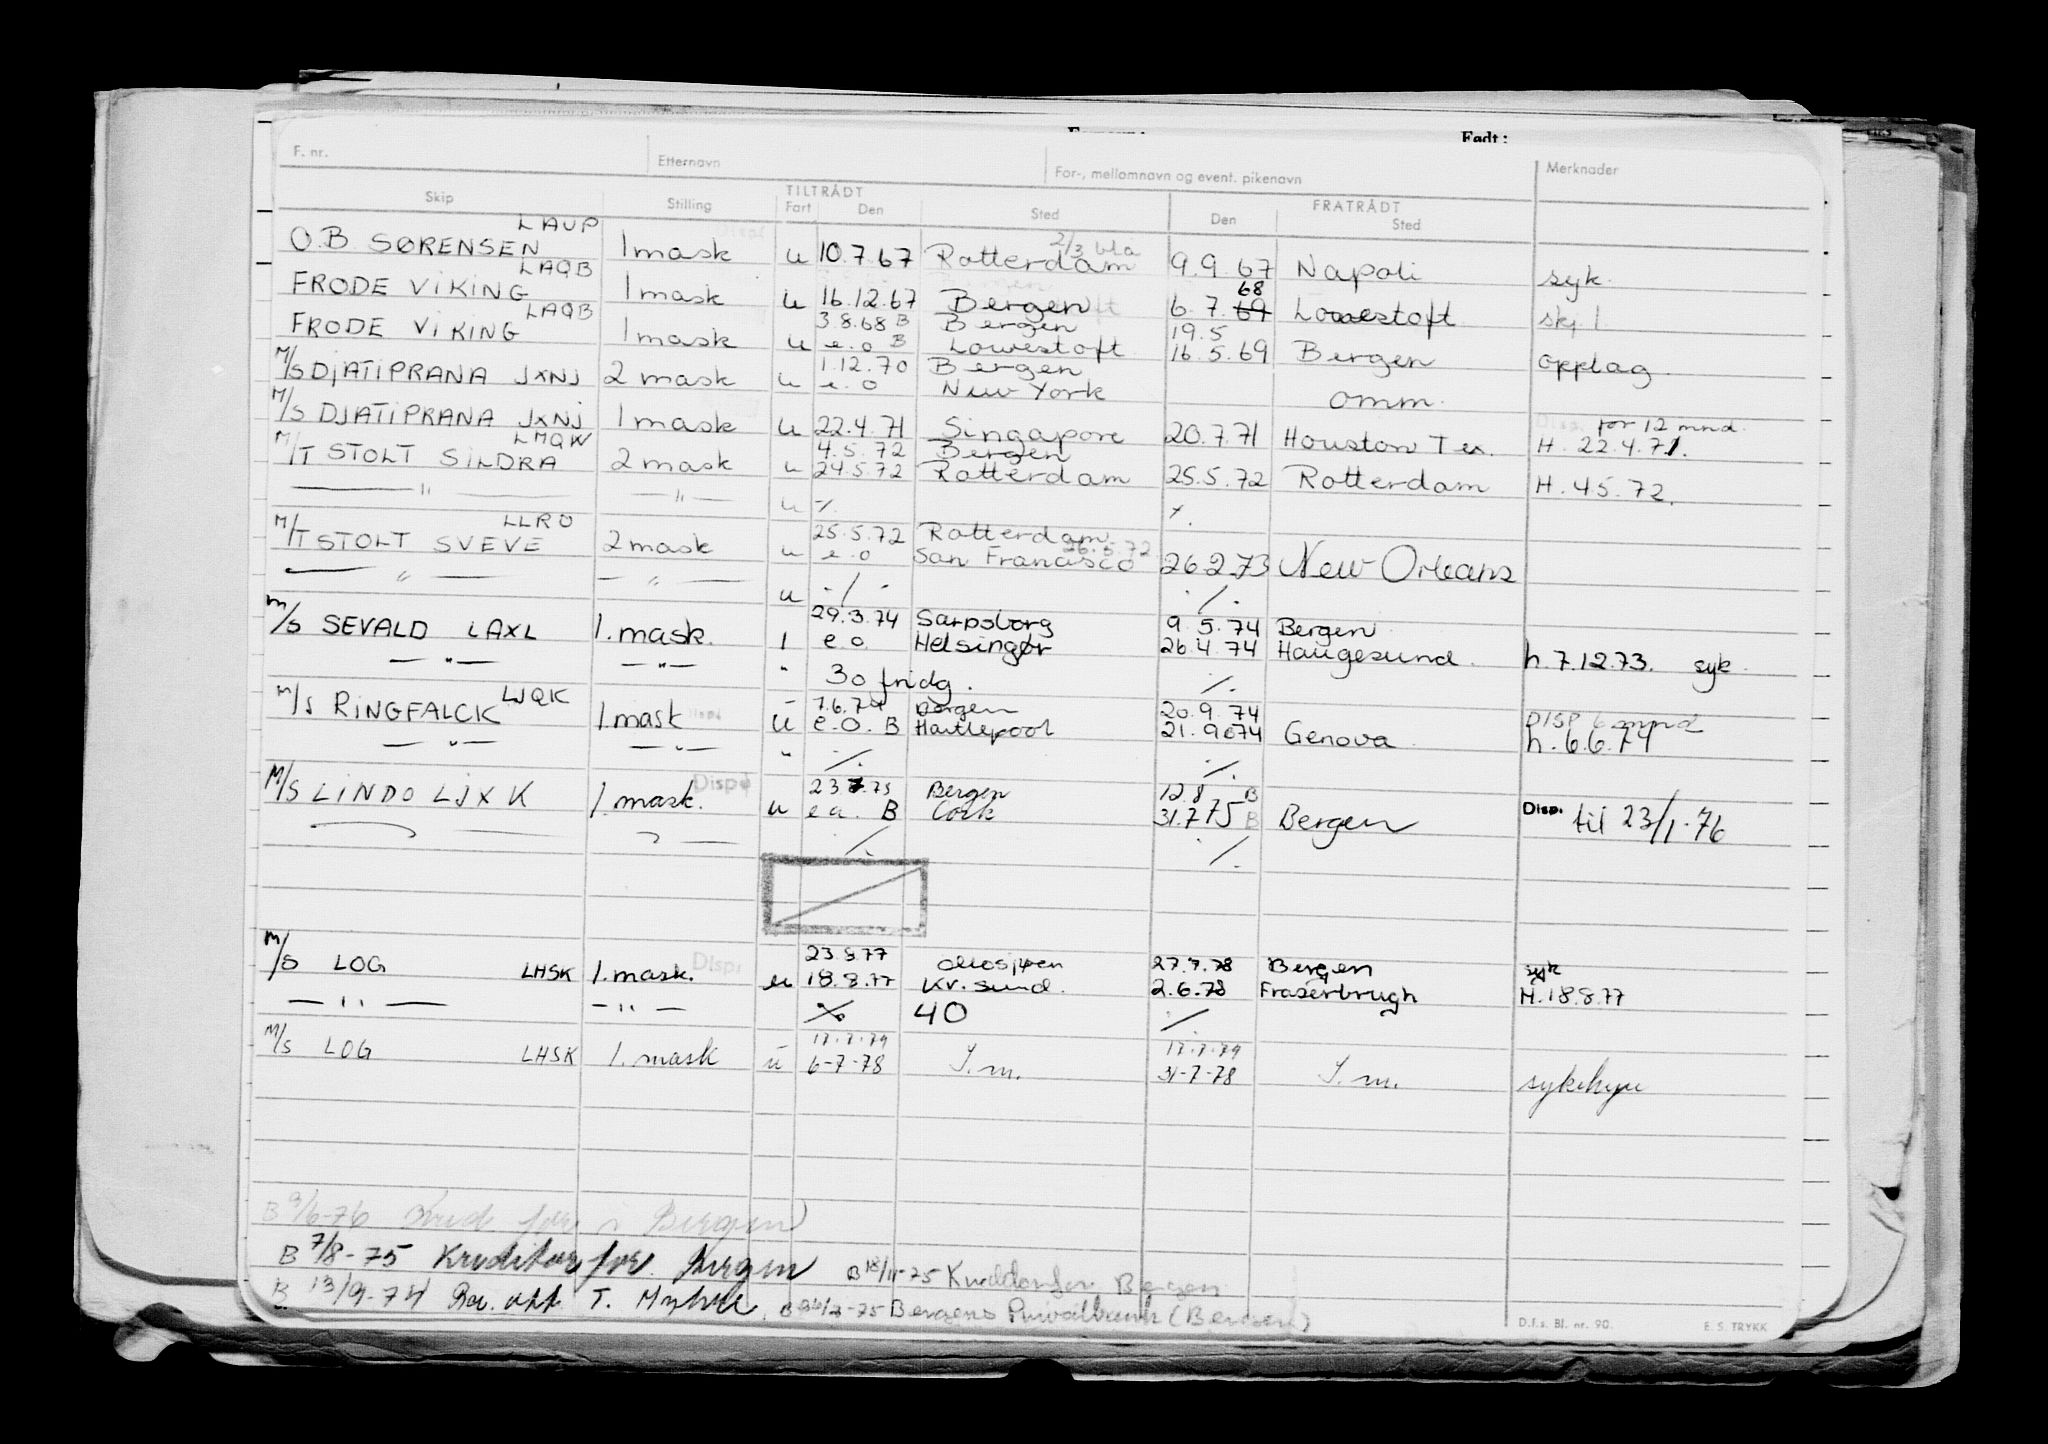 Født:
F. nr. Etternavn For-, mellomnavn og event. pikenavn Merknader
Skip Stilling TILTRÅDT FRATRÅDT
Fart Den Sted Den Sted
O.B. SØRENSEN LAUP 1 mask u 10.7.67 Rotterdam 2/3 bla 9.9.67 Napoli syk.
FRODE VIKING LAQB 1 mask u 16.12.67 Bergen 6.7.69 68 Lowestoft skj 1
3.8.68 B Bergen 19.5
FRODE VIKING LAQB 1 mask u e.o B Lowestoft 16.5.69 Bergen opplag
1.12.70 Bergen
M/S DJATIPRANA JXNJ 2 mask u e.o New York omm.
for 12 mnd.
M/S DJATIPRANA JXNJ 1 mask u 22.4.71 Singapore 20.7.71 Houston Tex. H. 22.4.71.
4.5.72 Bergen
M/T STOLT SILDRA LMQW 2 mask u 24.5.72 Rotterdam 25.5.72 Rotterdam H. 4.5.72.
— " — — " — u ·/. ·/.
25.5.72 Rotterdam
M/T STOLT SVEVE LLRO 2 mask u e.o San Francisco 26.5.72 26.2.73 New Orleans
— " — — " — u ·/. ·/.
29.3.74 Sarpsborg 9.5.74 Bergen
M/S SEVALD LAXL 1. mask. 1 e.o. Helsingør 26.4.74 Haugesund. h. 7.12.73. syk.
— " — — " — " 30 fridg. ·/.
7.6.74 Bergen 20.9.74 DISP 6 mnd
M/S RINGFALCK LJQK 1. mask u e.o. B Hartlepool 21.9.74 Genova h. 6.6.74
— " — — " — " ·/. ·/.
Dispe 23 7.75 Bergen 12.8 B
M/S LINDO LJXK 1. mask. u e.o. B Cork 31.7.75 B Bergen Disp. til 23/1-76
·/. ·/.
Disp. 23.8.77 27.7.78 Bergen syk
M/S LOG LHSK 1. mask. u 18.8.77 Kr.sund. 2.6.78 Fraserbrugh H. 18.8.77
— " — — " — ·/. 40 ·/.
17.7.79 17.7.79
M/S LOG LHSK 1. mask u 6-7-78 I.m. 31-7-78 I.m.
B 9/6-76 Bergen
B 7/8-75 Kreditor for. Bergen B 18/11-75 Bergen
B 13/9-74 T. -75 Bergens Privatbank (Bergen)
D.f.s. Bl. nr. 90. E. S. TRYKK